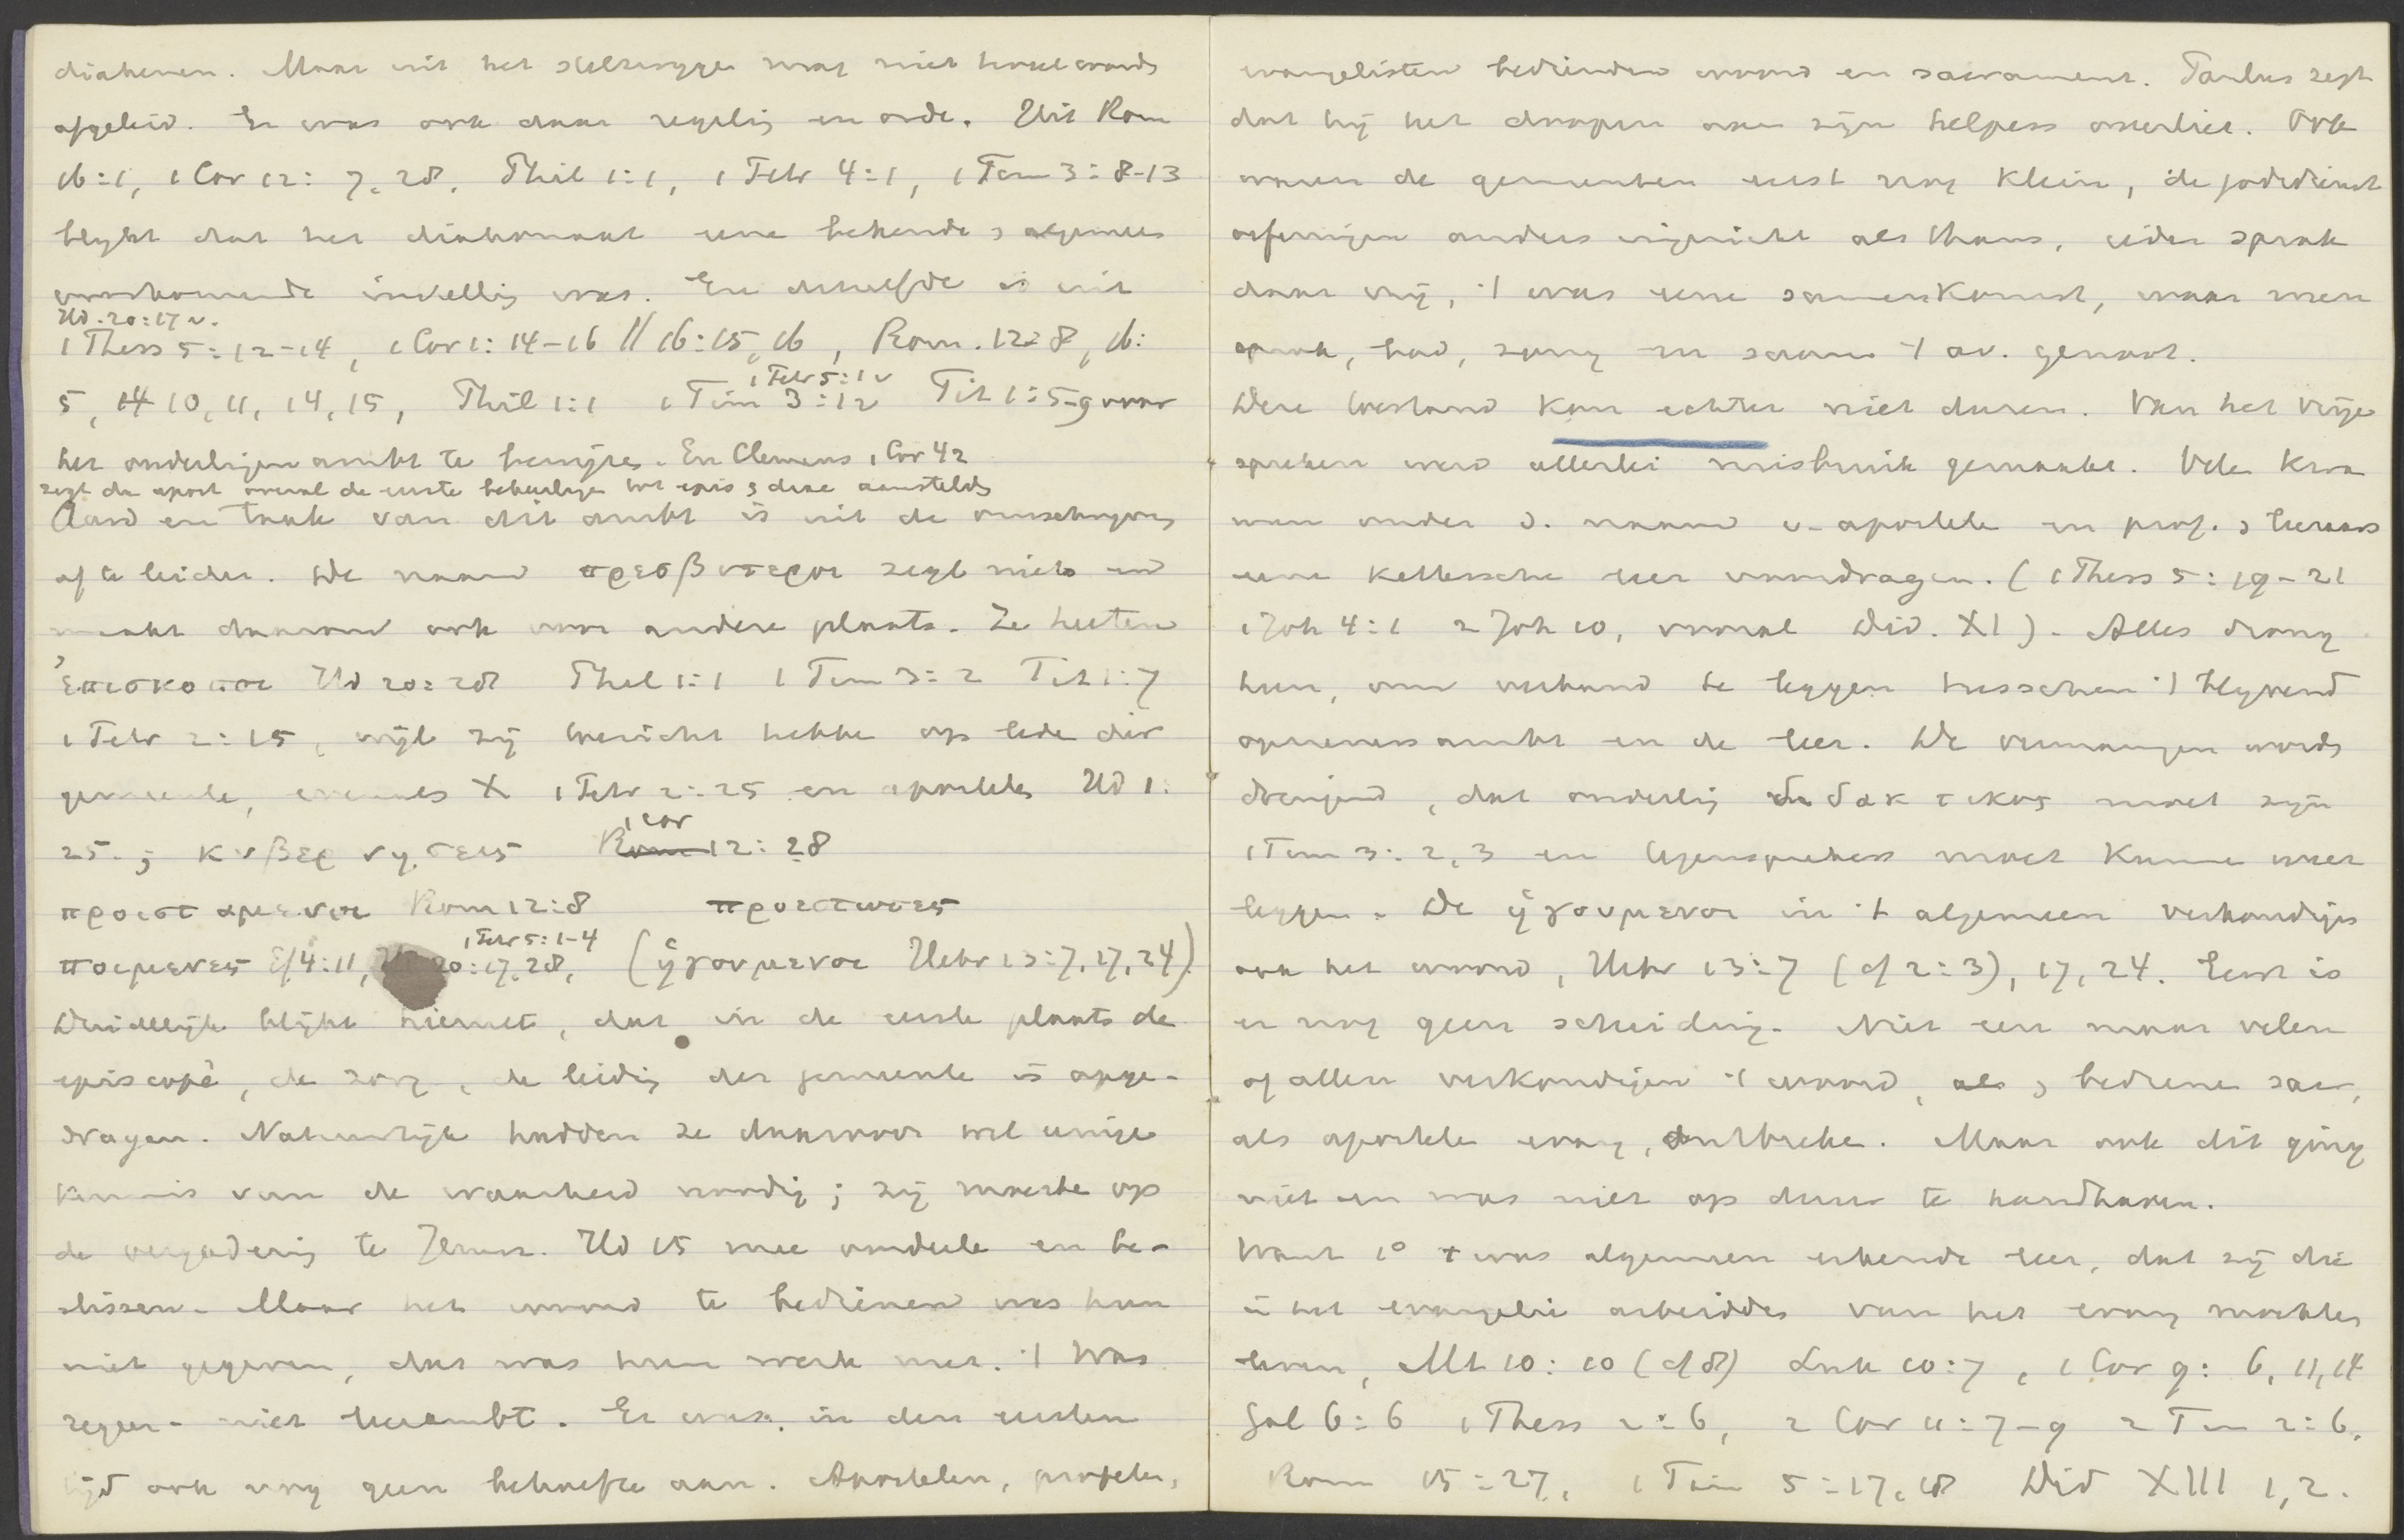 diakenen. Maar uit het stilzwygen mag niet
afgeleid. Er was ook daar regeling en orde. Uit Rom
16:1, 1 Cor 12: 7, 28, Phil 1:1, 1 Petr 4:1, 1 Tim 3: 8-13
blykt dat het diakonaat eene bekende & algemeen
voorkomende instelling was. En hetzelfde is uit
Hd. 20:17 v.
1 Thess 5:12-14, 1 Cor 1: 14-16 // 16:15, 16, Rom. 12:8, 16:
1 Petr 5:1 v
5, 14 10, 11, 14, 15, Phil 1:1 1 Tim 3:1v Tit 1:5-9 voor
het ouderlingenambt te bewijzen. En Clemens 1 Cor 42
zegt de apost overal de eerste bekeerlingen tot epis & diac aanstelden
Aard en taak van dit ambt is uit de omschryving
af te leiden. De naam πρεσβυτεροι zegt niets en
maakt daarom ook voor andere plaats. Ze heeten
ἐπισκοποι Hd 20:28 Phil 1:1 1 Tim 3:2 Tit 1:7
1 Petr 2:15, wijl zij toezicht hebben op leden der
gemeente, evenals X 1 Petr 2:25 en apostelen Hd 1:
1 Cor
25. ; κυβερνησεις Rom 12:28
προισταμενοι Rom 12:8 προεστωτες
1 Petr 5:1-4
ποιμενες Ef 4:11, 20:17, 28, (ἡγουμενοι Hebr 13:7, 17, 24)
Duidelijk blijkt hieruit, dat in de eerste plaats de
episcopè, de zorg, de leiding der gemeente is opge-
dragen. Natuurlijk hadden ze daarvoor wel eenige
kennis van de waarheid noodig; zij moesten op
de vergadering te Jeruz. Hd 15 mee oordeelen en be-
slissen. Maar het woord te bedienen was hun
niet gegeven, dat was hun werk niet. 't Was
regeer- niet leerambt. Er was in den eersten
tijd ook nog geen behoefte aan. Apostelen, profeten,
evangelisten bedienden woord en sacrament. Paulus zegt
dat hij het doopen aan zijn helpers overliet. Ook
waren de gemeenten eerst nog klein, de godsdienst
oefeningen anders ingericht als thans, ieder sprak
daar vrij, 't was eene samenkomst, waar men
sprak, bad, zong en saam 't av. genoot.
Deze toestand kon echter niet duren. Van het vrije
spreken werd allerlei misbruik gemaakt. Vele
men onder d. naam v. apostelen en prof. & leeraars
eene kettersche leer voordragen. (1 Thess 5:19-21
1 Joh 4:1 2 Joh 10, vooral Did. XI). Alles drong
heen, om verband te leggen tusschen 't blyvend
opzienersambt en de leer. De vermaningen worden
dringend, dat ouderling διδακτικος moet zyn
1 Tim 3:2, 3 en tegensprekers moet kunnen weer
leggen. De ἡγουμενοι in 't algemeen verkondigen
ook het woord, Hebr 13:7 (cf 2:3), 17, 24. Eerst is
er nog geen scheiding. Niet een maar velen
of allen verkondigen 't woord, als & bedienen sacr,
als apostelen evang, ontbreken. Maar ook dit ging
niet en was niet op duur te handhaven.
Want 1° 't was algemeen erkende leer, dat zij die
in het evangelie arbeidden van het evang mochten
leven, Mt 10:10 (cf 8) Luk 10:7, 1 Cor 9: 6, 11, 14
Gal 6:6 1 Thess 2:6, 2 Cor 11:7-9 2 Tim 2:6,
Rom 15:27, 1 Tim 5:17, 18 Did XIII 1, 2.